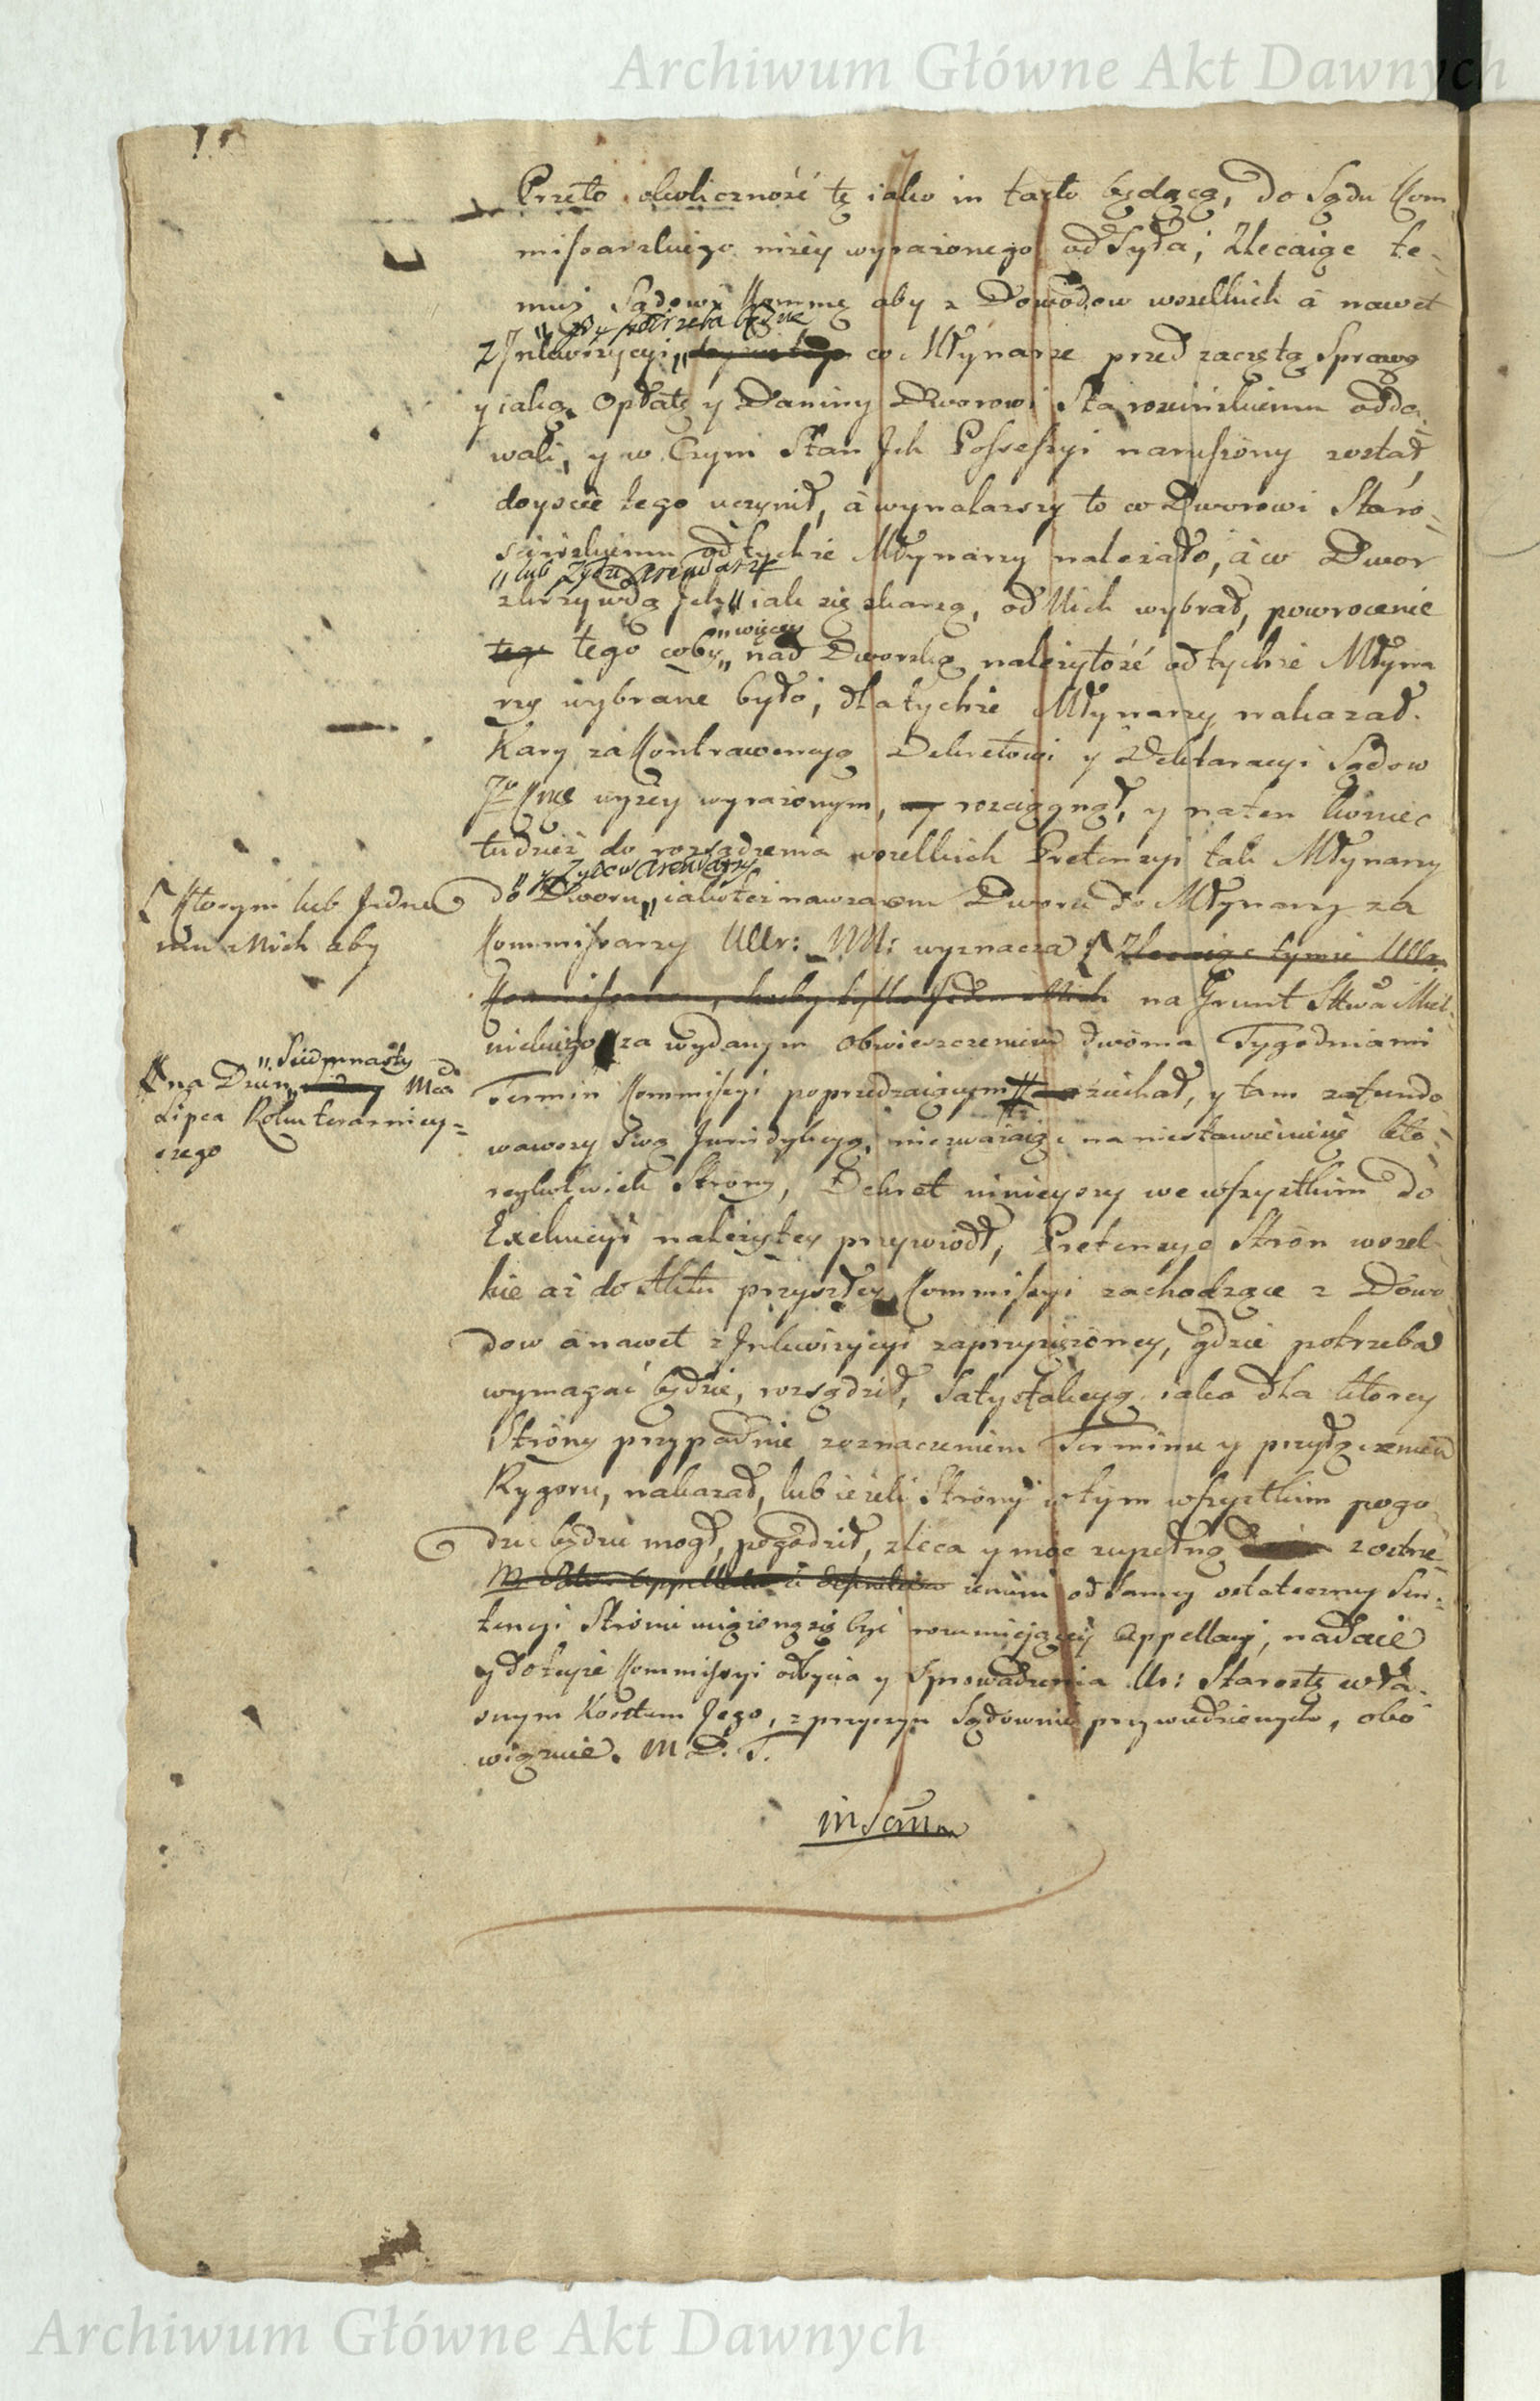 Archiwum Główne Akt Dawnych
Przeto okoliczność tę iako in facto będącą, do Sądu Kom
missarskiego niżey wyrażonego odsyła; Zlecaiąc te-
muż Sądowi Kommę aby z Dowodow wszelkich á nawet
gdy potrzeba będzie
z Inkwizycyi, co Młynarze przed zaczętą Sprawą
y iaką Opłatę y Daniny Dworowi Starościńskiemu odda-
wali, y w Czym Stan Jch Possessyi naruszony został,
doyście tego uczynił, á wynalazszy to co Dworowi Staro-
ścińskiemu od tychże Młynarzy należało, á w Dwor
lub Zydzi Arendarze
z krzywdą Jch iak się skarzą, od Nich wybrał, powrocenie
więcey
tego coby nad Dworską należytość od tychże Młyna
rzy wybrane było, dla tychże Młynarzy nakazał.
Kary za Kontrawencyą Dekretowi y Deklaracyi Sądow
wyżey wyrażonym, rozciągnął, y na ten koniec
tudzież do rozsądzenia wszelkich Pretensyi tak Młynarzy
y Zydow Arendarzy
do Dworu iako też nawzaiem Dworu do Młynarzy za
Kommissarzy UUr: NN: wyznacza Zlecaiąc tymże UUr.
na Grunt Sttwa Miel-
nickiego za wydanym obwieszczeniem dwoma Tygodniami
Termin Kommissyi poprzedzaiącym ziechał, y tam zafundo-
wawszy Swą Jurisdykcyą, niezważaiąc na niestawienie kto-
reykolwiek Strony, Dekret ninieyszy we wszystkim do
Exekucyi należytey przywiodł, Pretensye Stron wszel-
kie aż do Aktu przyszłey Kommissyi zachodzące z Dowo-
dow á nawet z Inkwizycyi zaprzysiężoney, gdzie potrzeba
wymagać będzie, rozsądził, Satysfakcyą iako dla ktorey
Strony przypadnie z oznaczeniem Terminu y przyłączeniem
Rygoru, nakazał, lub ieżeli Strony w tym wszystkim pogo
dzić będzie mogł, pogodził, zleca y moc zupełną
od samey ostateczney Sen-
tencyi Stronie uciążoną się być rozumieiącey Appellacyi, nadaie
y do teyże Kommissyi odbycia y Sprowadzenia Ur: Starostę wła-
snym Kosztem Jego, z przyczyn Sądownie przywiedzionych, obo
wiązuie. M D. T.
Ktorym lub Jedne
mu z Nich aby
Siedmnasty
na Dzień Mca
Lipca Roku teraźniey-
szego
Archiwum Główne Akt Dawnych